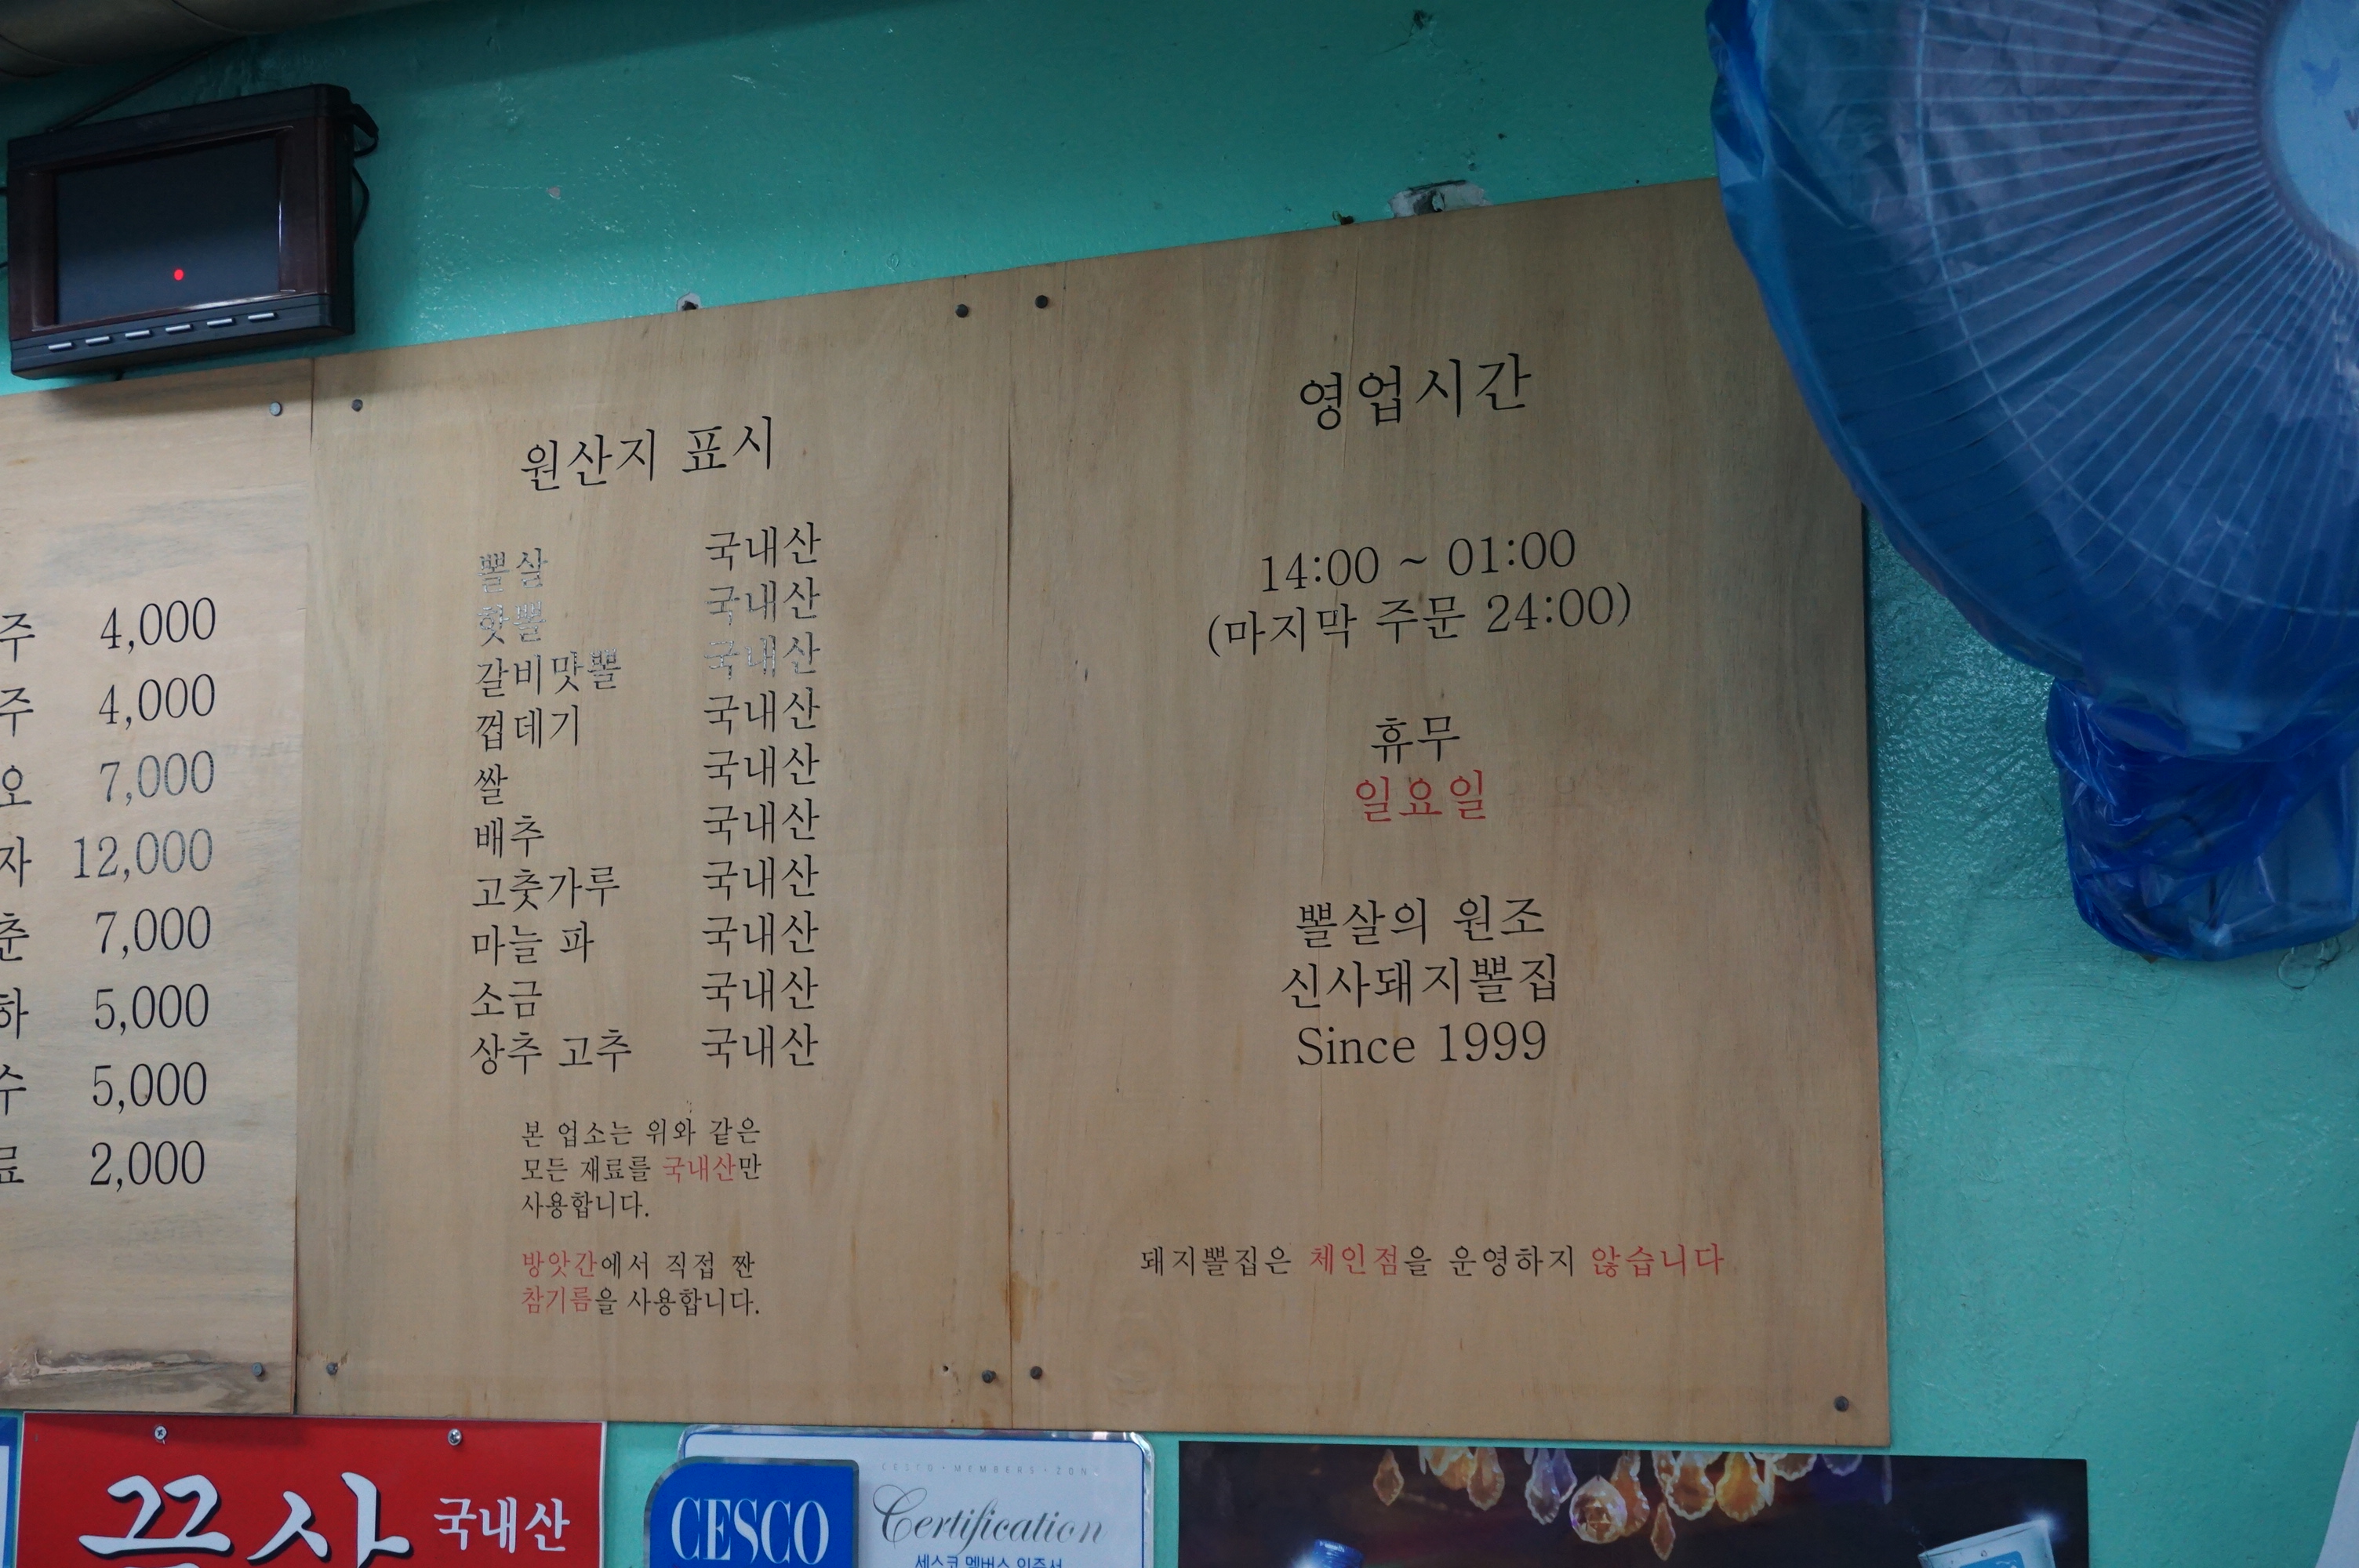 주 4,000
주 4,000
오 7,000
자 12,000
춘 7,000
하 5,000
수 5,000
료 2,000
원산지 표시
뽈살 국내산
핫뽈 국내산
갈비맛뽈 국내산
껍데기 국내산
쌀 국내산
배추 국내산
고춧가루 국내산
마늘 파 국내산
소금 국내산
상추 고추 국내산
본 업소는 위와 같은
모든 재료를 국내산만
사용합니다.
방앗간에서 직접 짠
참기름을 사용합니다.
영업시간
14:00 ~ 01:00
(마지막 주문 24:00)
휴무
일요일
뽈살의 원조
신사돼지뽈집
Since 1999
돼지뽈집은 체인점을 운영하지 않습니다
국내산
CESCO
CESCO · MEMBERS · ZON
Certification
세스코 멤버스 인증서